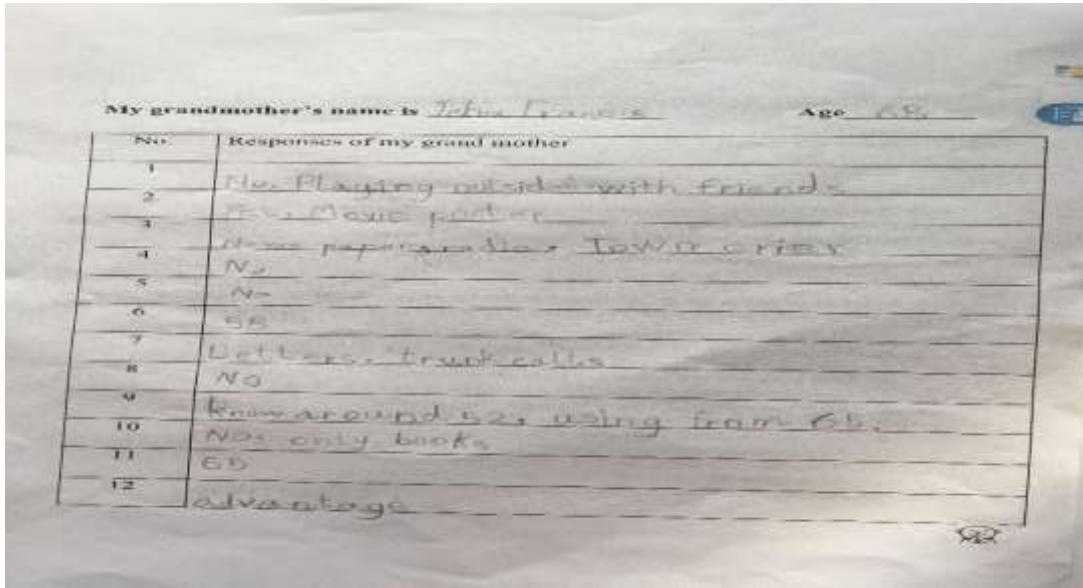 My grandmother's name is Age 68
No. Responses of my grand mother
1 No. Playing outside with friends
2 Yes. Movie poster
3 News paper, radio, Town crier
4 No
5 No
6 55
7 Letters, trunk calls
8 No
9 Know around 52, using from 65.
10 No, only books
11 65
12 advantage